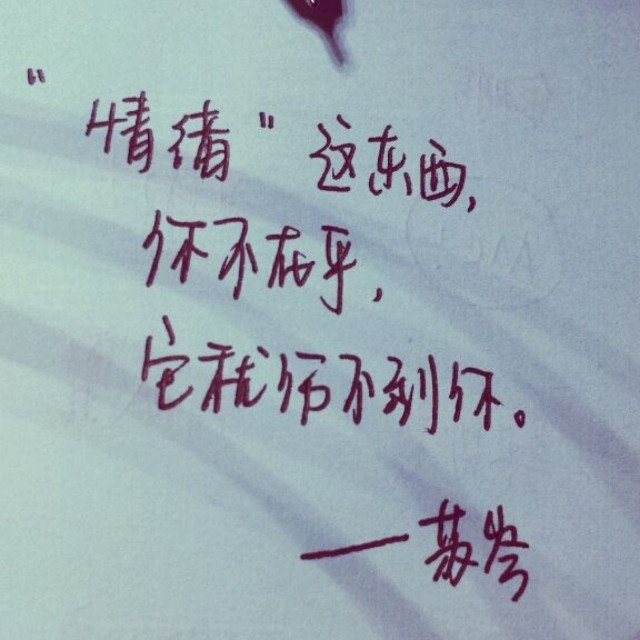 “情绪”这东西,
你不在乎,
它就伤不到你。
——苏芩